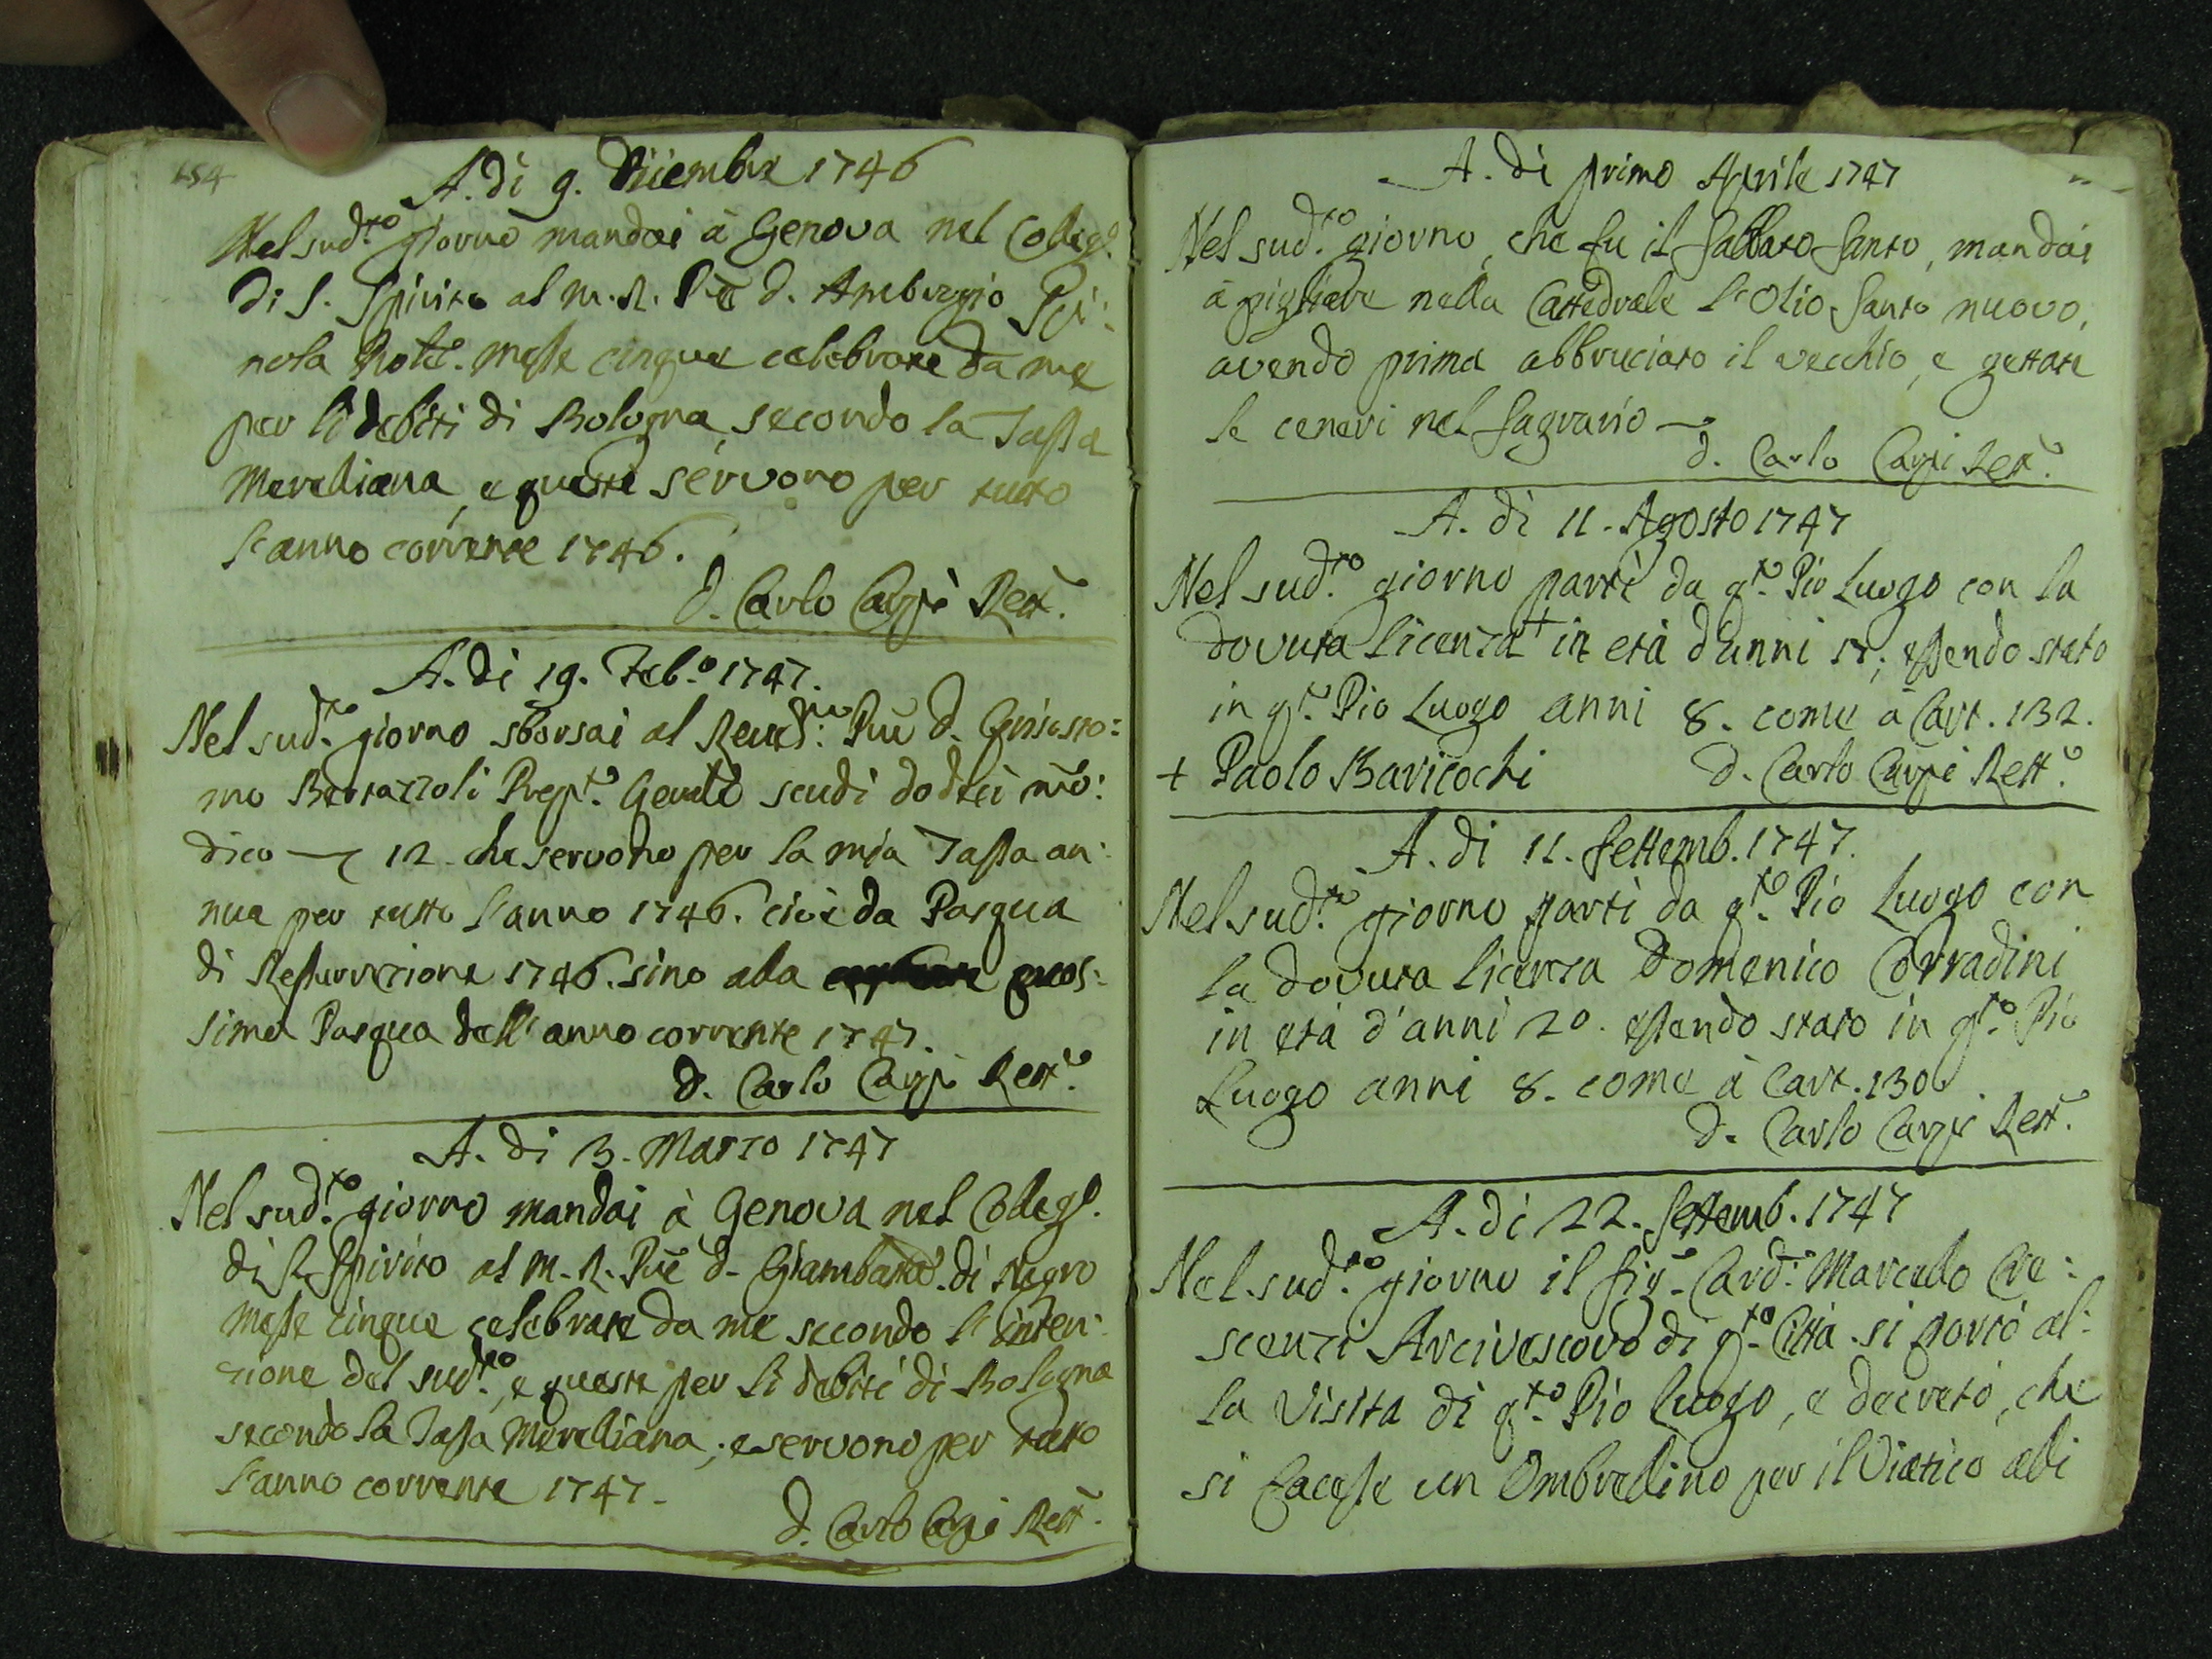 154
A. di 9. Diiembre 1746
Nel sud.to giorno mandai à Genova nel Colleg.o
di S. Spirito al M. R. P̃re d. Ambrogio Spi:
nola Messe cinque celebrate da me
per li debiti di Bologna, secondo la Tassa
Merelliana, e queste servono per tutto
l'anno corrente 1746.
d. Carlo Carpi Rett.e
A. di 19. Feb.o 1747.
Nel sud.to giorno sborsai al Revd.mo P̃re d. Grisosto:
mo Bertazzoli Prep.to Genãle scudi dodeci mõ:
dico — 12. che servono per la mia Tassa an:
nua per tutto l'anno 1746. cioè da Pasqua
di Resurrezione 1746. sino alla pros:
sima Pasqua dell'anno corrente 1747.
d. Carlo Carpi Rett.e
A. di 13. Marzo 1747
Nel sud.to giorno mandai à Genova nel Colleg.o
di S. Spirito al M. R. P̃re d. Giambatt̃a di Negro
Messe cinque celebrate da me secondo l'inten:
zione del sud.to, e queste per li debiti di Bologna
secondo la Tassa Merelliana; e servono per tutto
l'anno corrente 1747.
d. Carlo Carpi Rett.e
A. di primo Aprile 1747
Nel sud.to giorno, che fu il Sabbato Santo, mandai
à pigliare nella Cattedrale l'Olio Santo nuovo,
avendo prima abbruciato il vecchio, e gettate
le ceneri nel Sagrario —
d. Carlo Carpi Rett.e
A. di 11. Agosto 1747
Nel sud.to giorno partì da q.to Pio Luogo con la
dovuta licenza + in età d'anni 17; essendo stato
in q.to Pio Luogo anni 8. come à Cart. 132.
+ Paolo Baricochi d. Carlo Carpi Rett.e
A. di 11. Settemb. 1747.
Nel sud.to giorno partì da q.to Pio Luogo con
la dovuta licenza Domenico Corradini
in età d'anni 20. essendo stato in q.to Pio
Luogo anni 8. come à Cart. 130
d. Carlo Carpi Rett.e
A. di 22. Settemb. 1747
Nel sud.to giorno il Sig.e Card. Marcello Cre:
scenzi Arcivescovo di q.ta Città si portò al:
la Visita di q.to Pio Luogo, e decretò, che
si facesse un Ombrellino per il Viatico alli